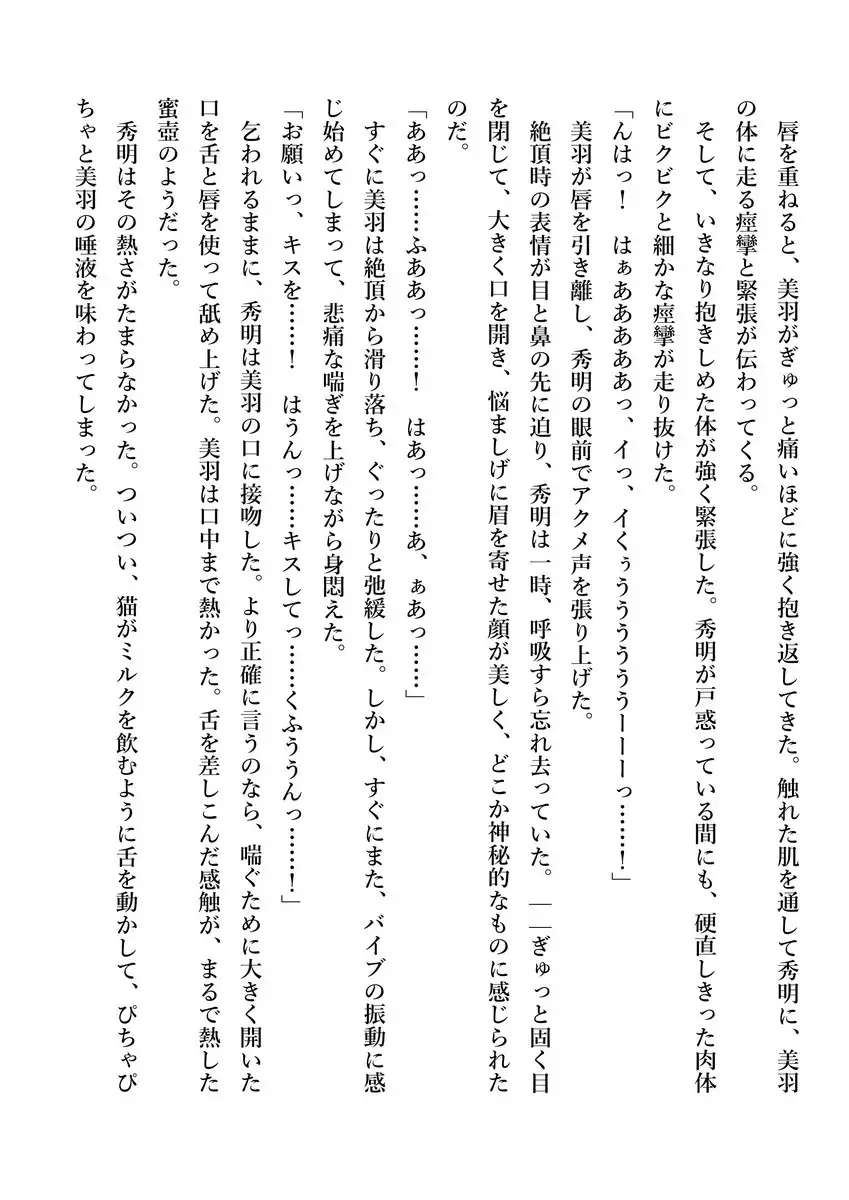 唇を重ねると、美羽がぎゅっと痛いほどに強く抱き返してきた。触れた肌を通して秀明に、美羽
の体に走る痙攣と緊張が伝わってくる。
そして、いきなり抱きしめた体が強く緊張した。秀明が戸惑っている間にも、硬直しきった肉体
にビクビクと細かな痙攣が走り抜けた。
「んはっ！　はぁああああっ、イっ、イくぅうううううーーーっ……！」
美羽が唇を引き離し、秀明の眼前でアクメ声を張り上げた。
絶頂時の表情が目と鼻の先に迫り、秀明は一時、呼吸すら忘れ去っていた。――ぎゅっと固く目
を閉じて、大きく口を開き、悩ましげに眉を寄せた顔が美しく、どこか神秘的なものに感じられた
のだ。
「ああっ……ふああっ……！　はあっ……あ、ぁあっ……」
すぐに美羽は絶頂から滑り落ち、ぐったりと弛緩した。しかし、すぐにまた、バイブの振動に感
じ始めてしまって、悲痛な喘ぎを上げながら身悶えた。
「お願いっ、キスを……！　はうんっ……キスしてっ……くふううんっ……！」
乞われるままに、秀明は美羽の口に接吻した。より正確に言うのなら、喘ぐために大きく開いた
口を舌と唇を使って舐め上げた。美羽は口中まで熱かった。舌を差しこんだ感触が、まるで熱した
蜜壺のようだった。
秀明はその熱さがたまらなかった。ついつい、猫がミルクを飲むように舌を動かして、ぴちゃぴ
ちゃと美羽の唾液を味わってしまった。